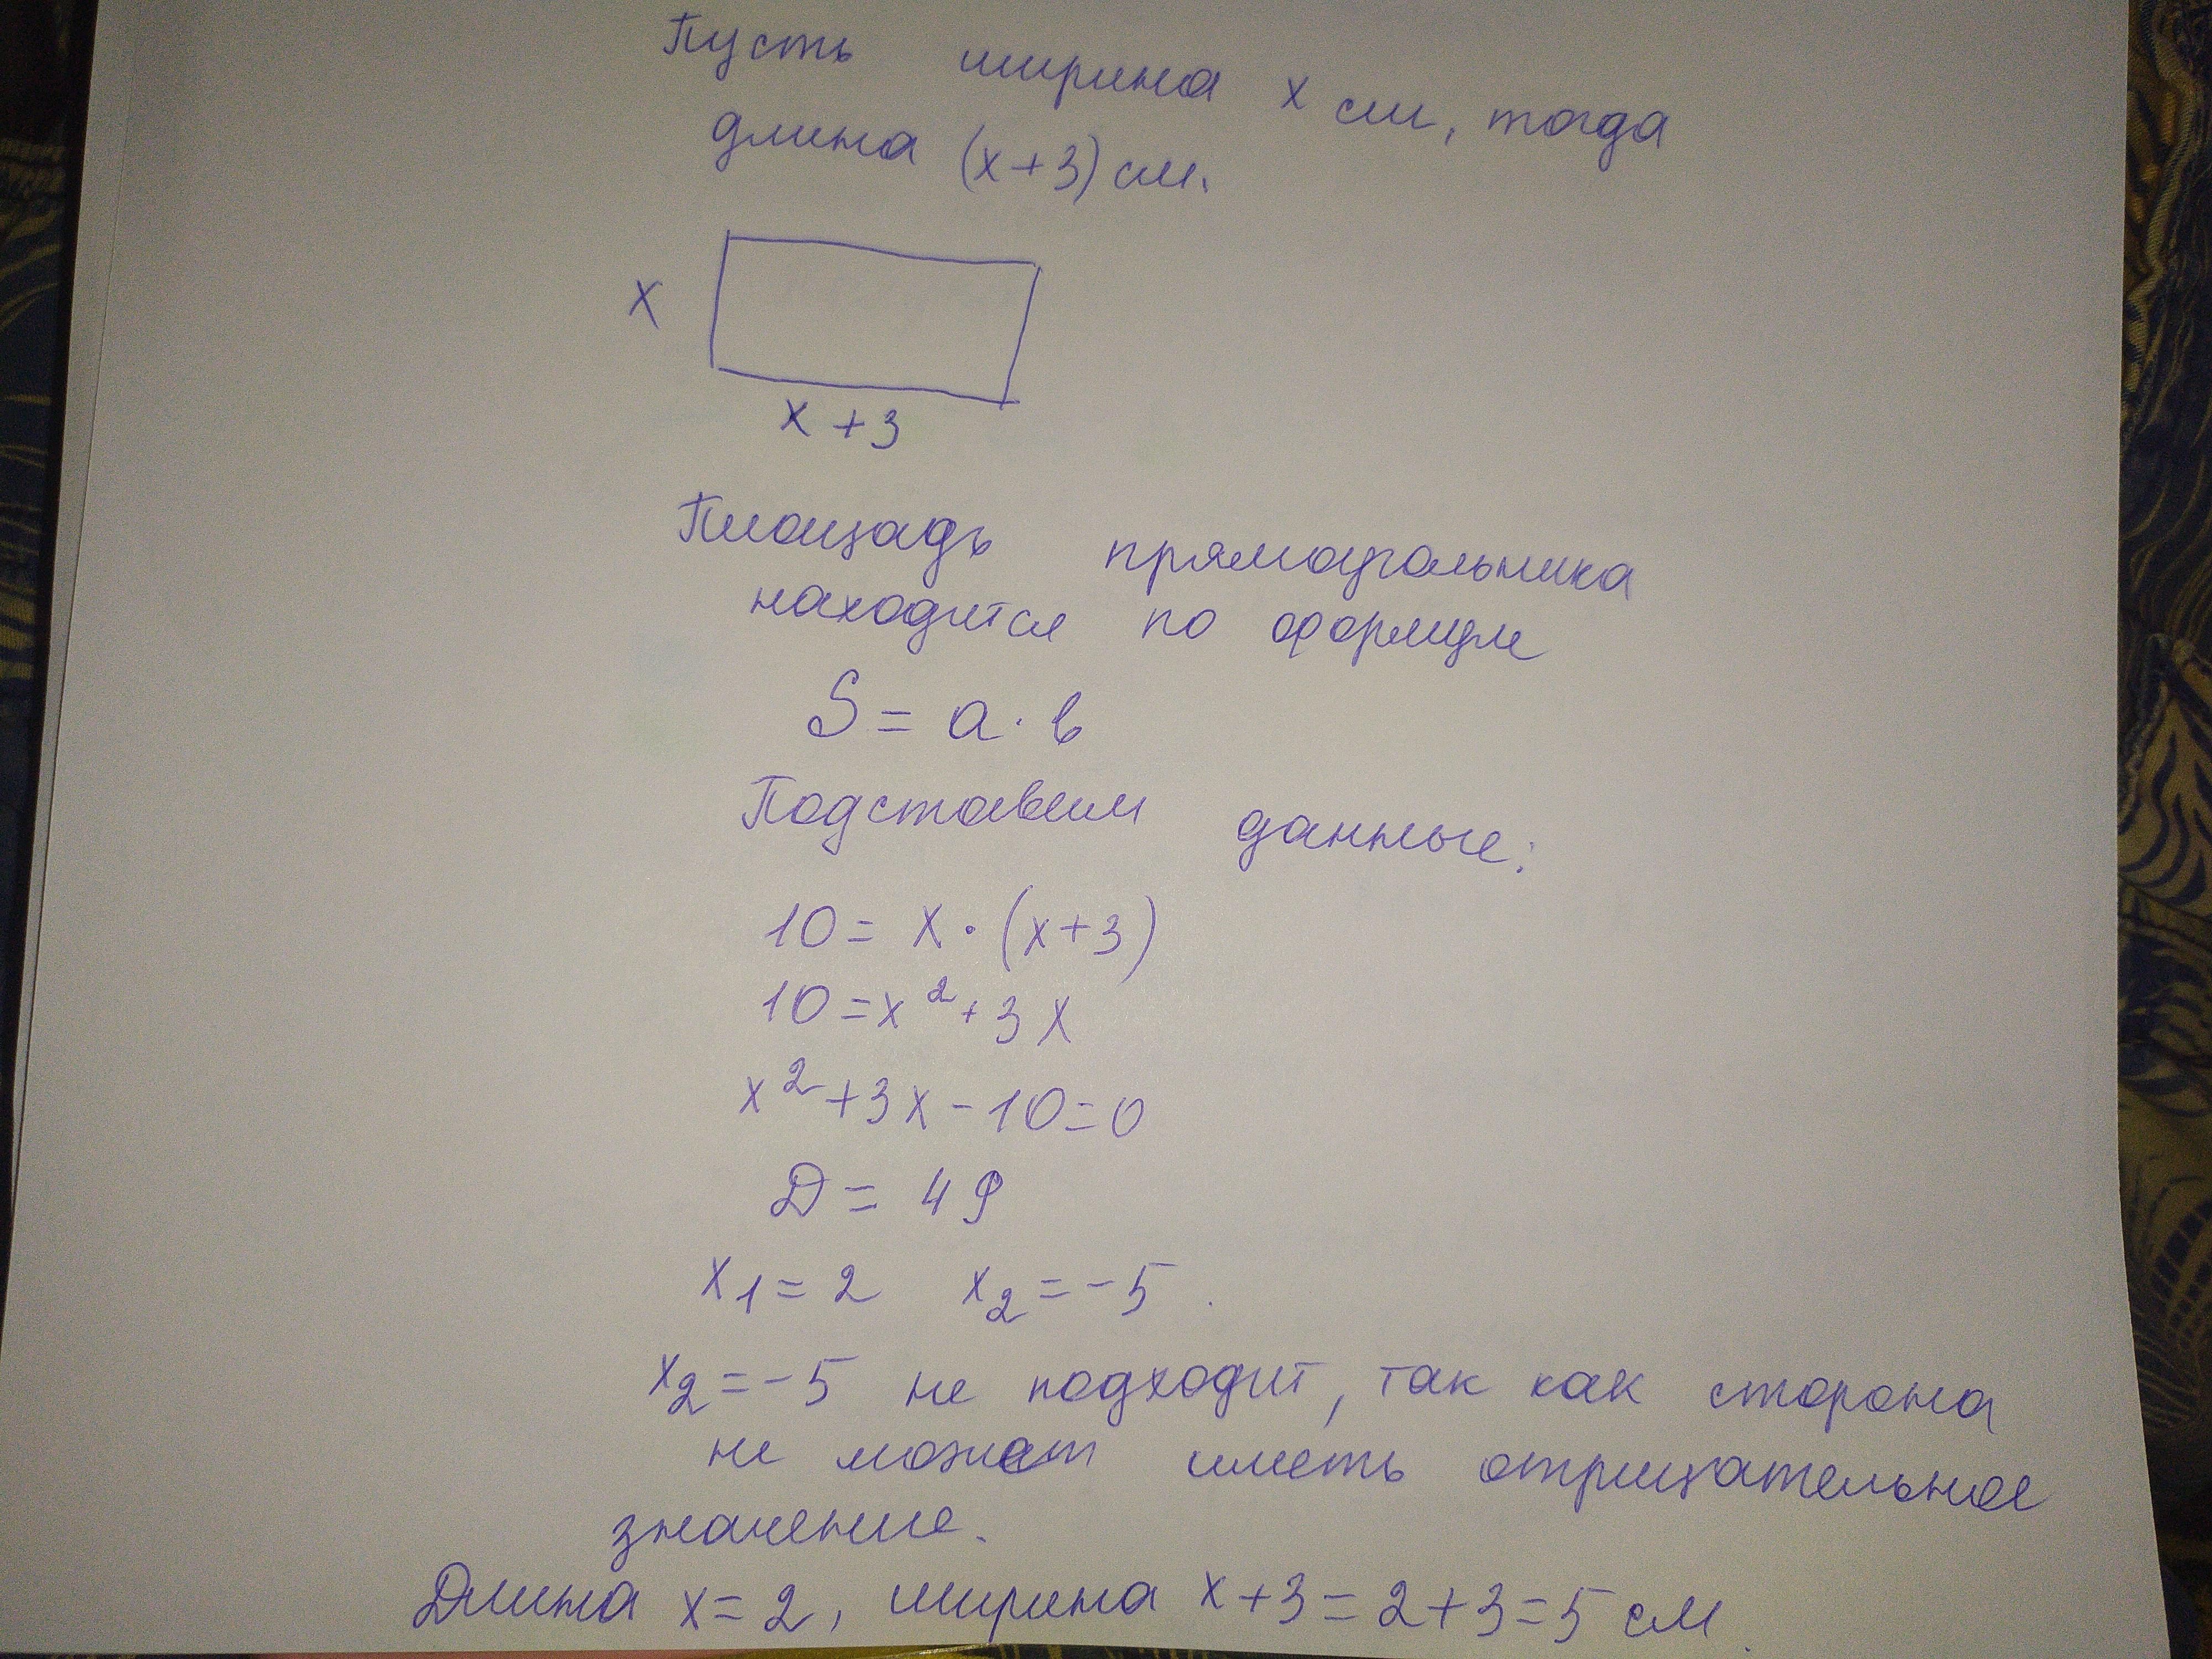 Пусть ширина x см, тогда
длина (x+3) см.
x
x+3
Площадь прямоугольника
находится по формуле
S = a · b
Подставим данные:
10 = x · (x+3)
10 = x² + 3x
x² + 3x - 10 = 0
D = 49
x₁ = 2 x₂ = -5.
x₂ = -5 не подходит, так как сторона
не может иметь отрицательное
значение.
Длина x = 2, ширина x+3 = 2+3 = 5 см.